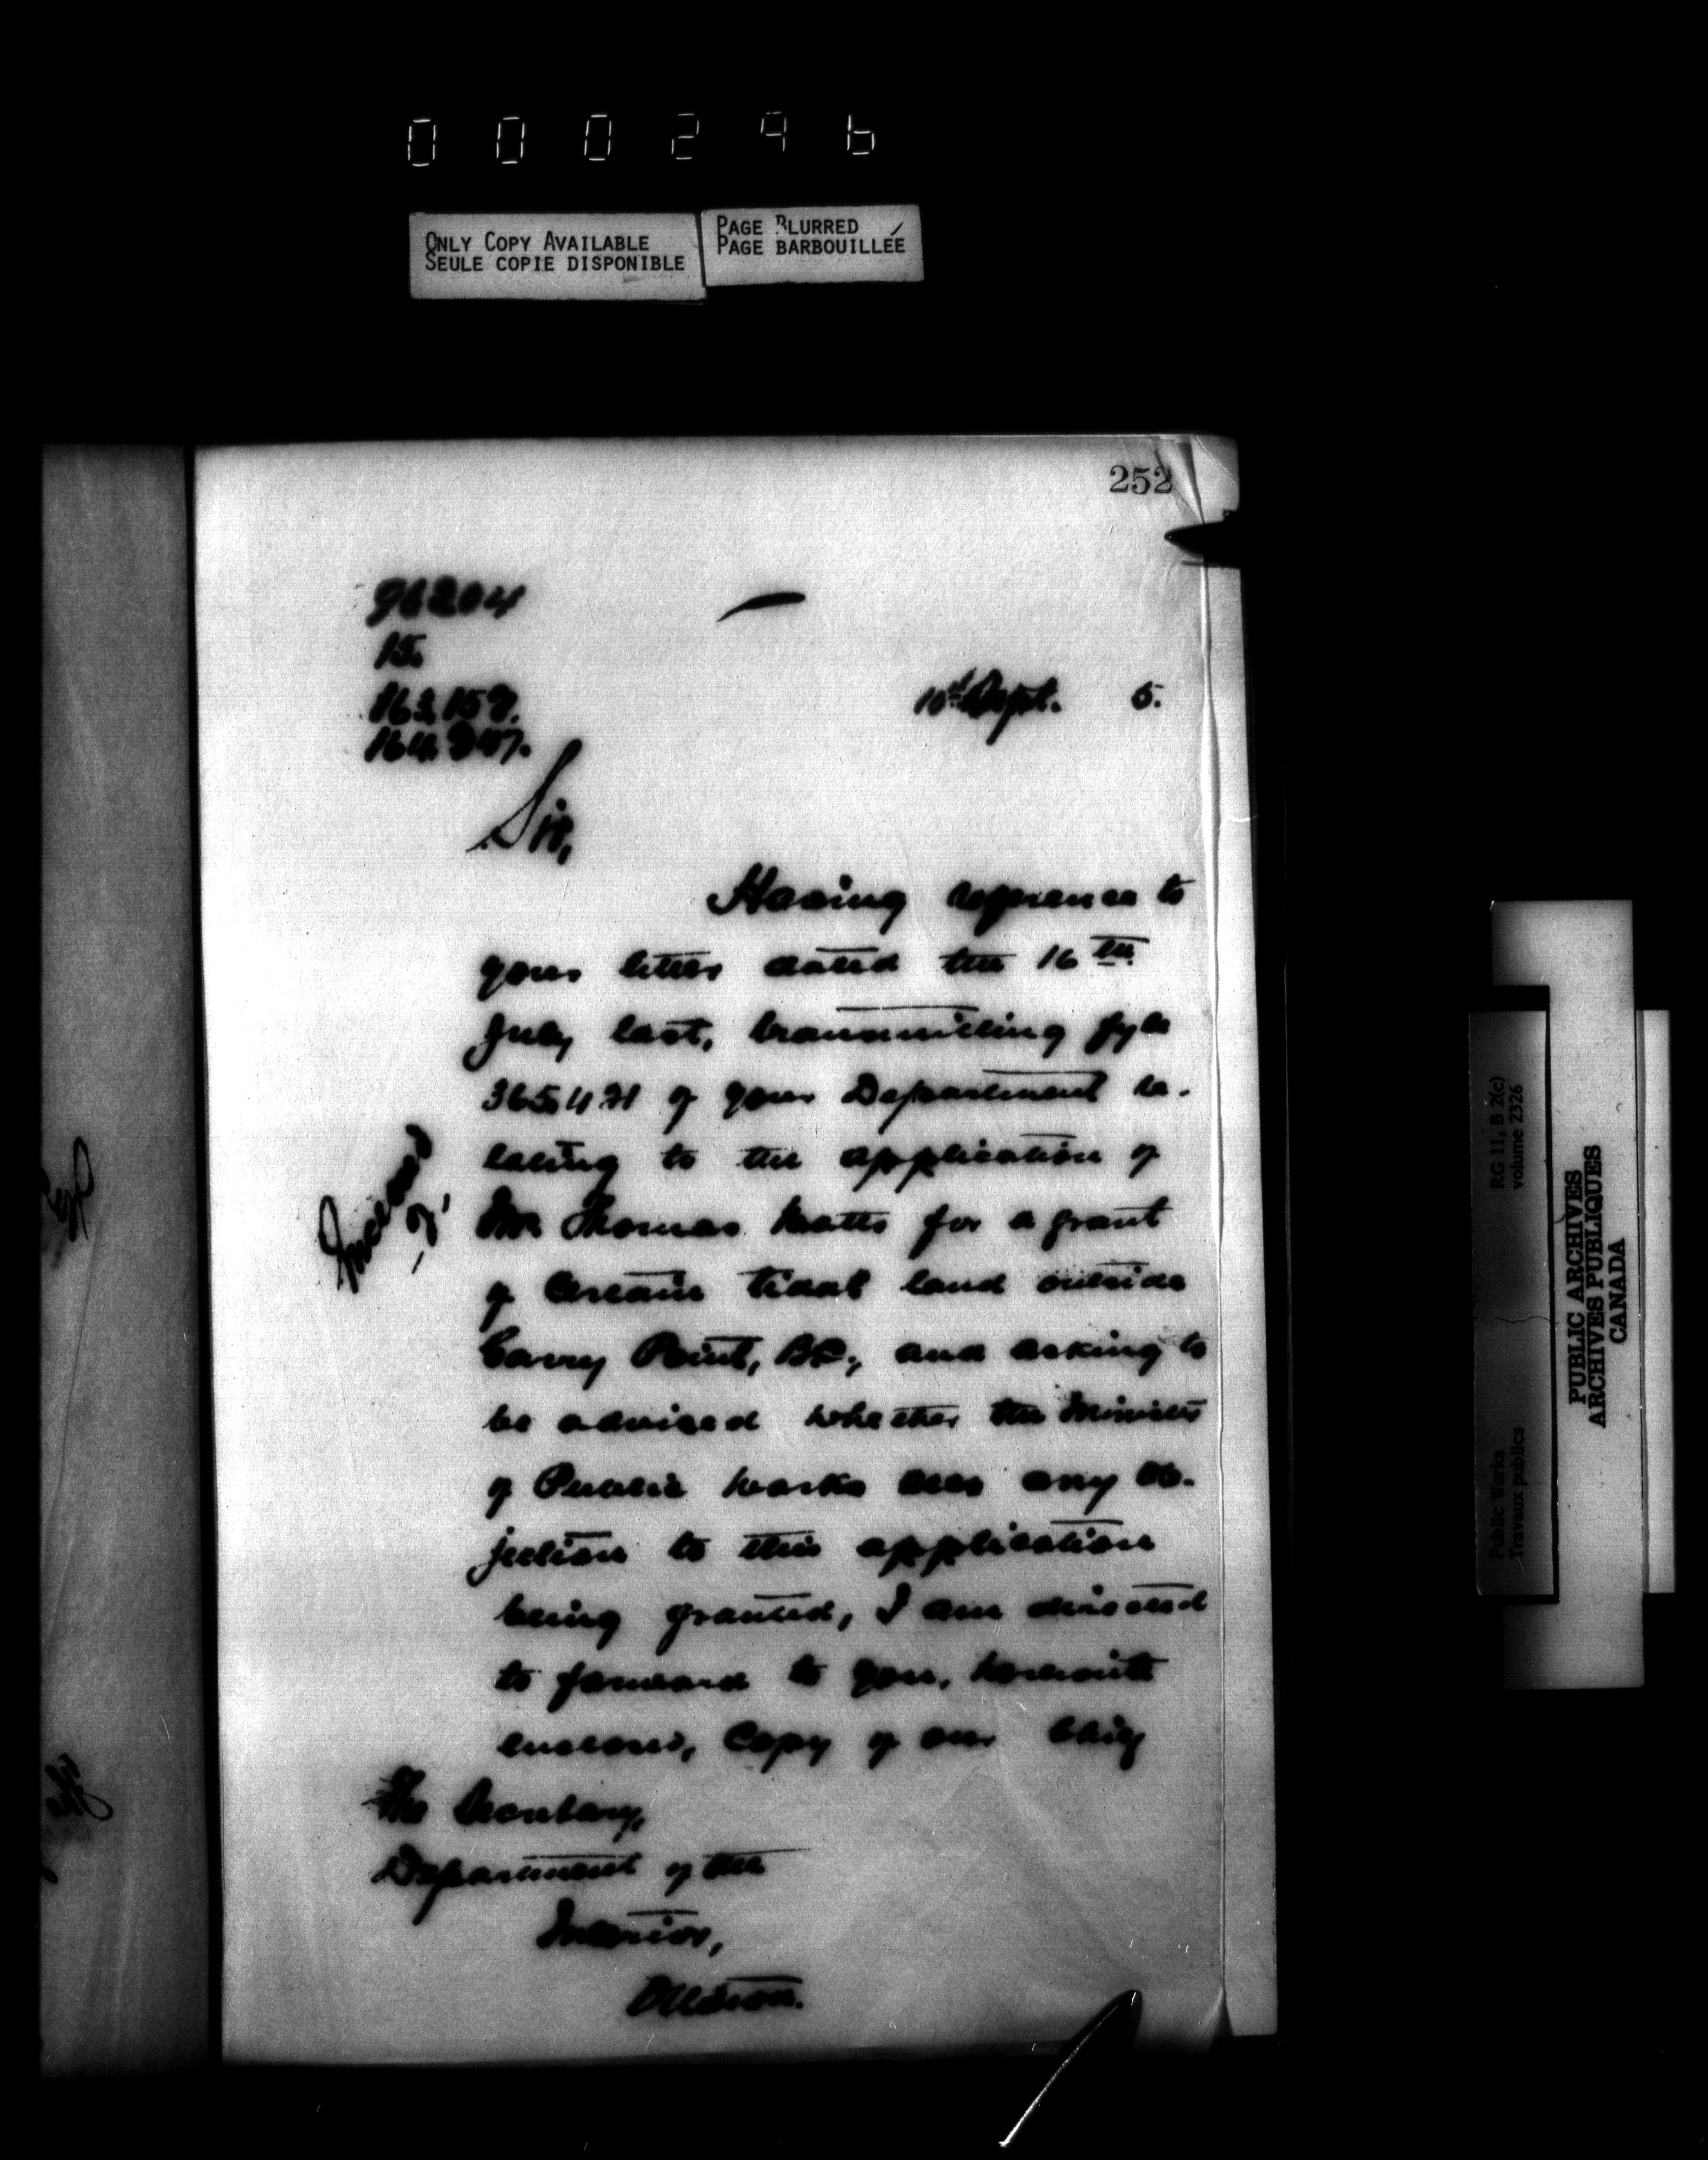 000296
ONLY COPY AVAILABLE
SEULE COPIE DISPONIBLE
PAGE BLURRED
PAGE BARBOUILLÉE
252
96204
15.
10th Sept. 5.
Sir,
Having reference to
your letter dated the 16th
July last, transmitting fyle
of your Department re-
lating to the application of
Mr Thomas Watts for a grant
of certain tidal land outside
Garry Point, B.C., and asking to
be advised whether the Minister
of Public Works sees any ob-
jection to this application
being granted, I am directed
to forward to you, herewith
enclosed, Copy of our Chief
Inclosed
The Secretary,
Department of the
Interior,
Ottawa.
RG 11, B 2(c)
volume 2326
Public Works
Travaux publics
PUBLIC ARCHIVES
ARCHIVES PUBLIQUES
CANADA